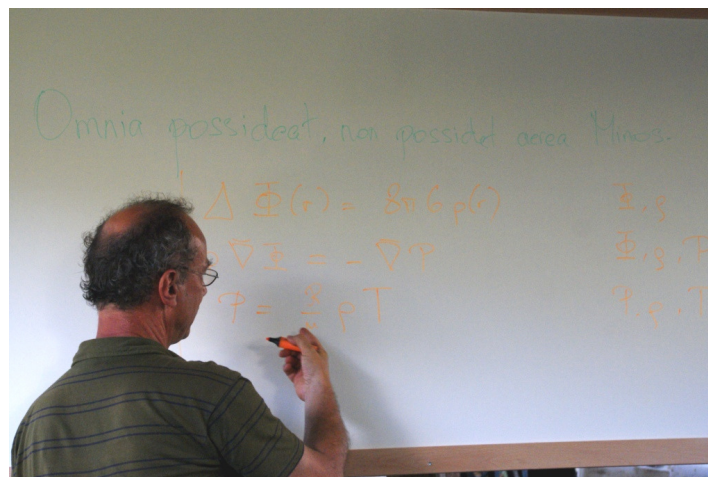 Omnia possideat, non possidet aera Minos.
Δ Φ(r) = 8πG ρ(r) Φ, ρ
∇Φ = - ∇P Φ, ρ, P
P = ρ T P, ρ, T